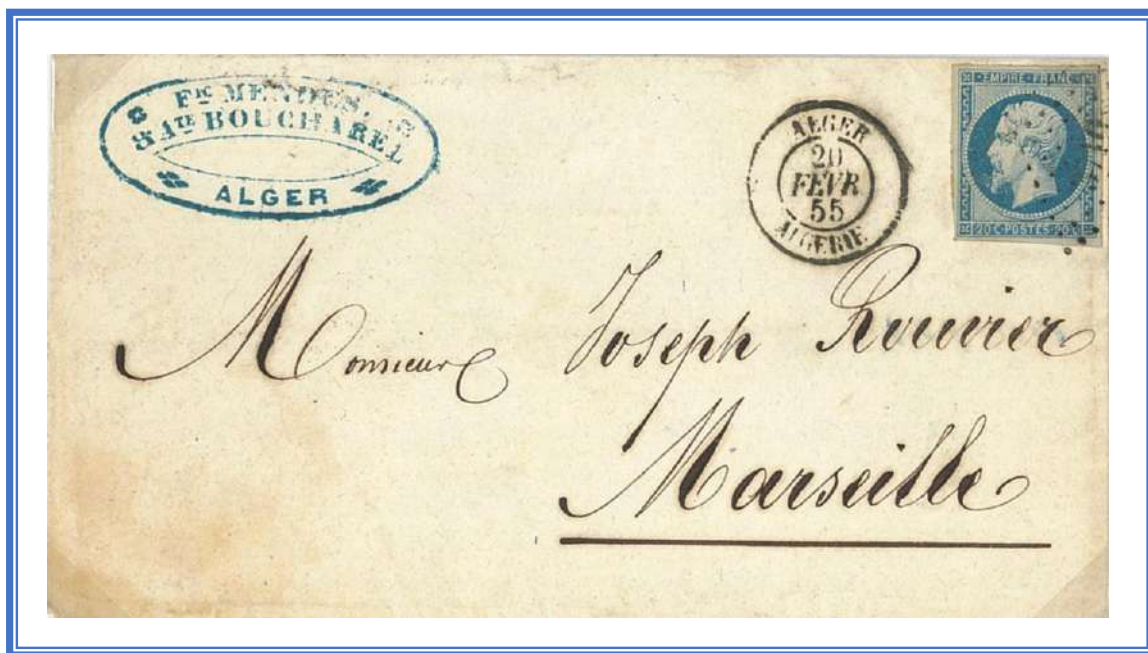 Fˢ MENDES
& Aᵗᵉ BOUCHAREL
ALGER
ALGER
20
FEVR
55
ALGERIE
EMPIRE·FRANC
20 C·POSTES·20 C
Monsieur Joseph Rouvier
Marseille